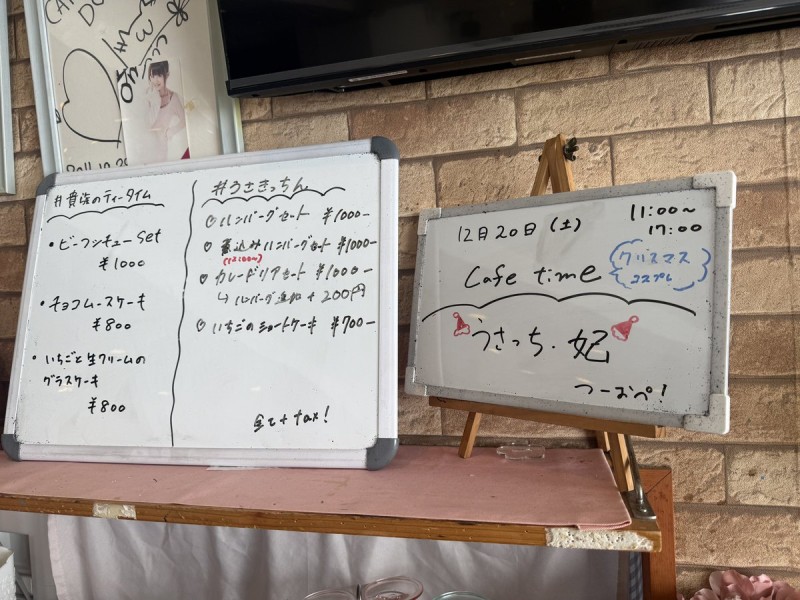 #貴浩のティータイム
・ビーフシチューset
¥1000
・チョコムースケーキ
¥800
・いちごと生クリームの
グラスケーキ
¥800
#うさきっちん
♡ハンバーグセット ¥1000-
♡煮込みハンバーグセット ¥1000-
♡カレードリアセット ¥1000-
↳ハンバーグ追加+200円
♡いちごのショートケーキ ¥700-
全て+tax!
12月20日(土)
11:00~
17:00
Cafe time
クリスマス
コスプレ
うさっち・妃
つーおぺ!